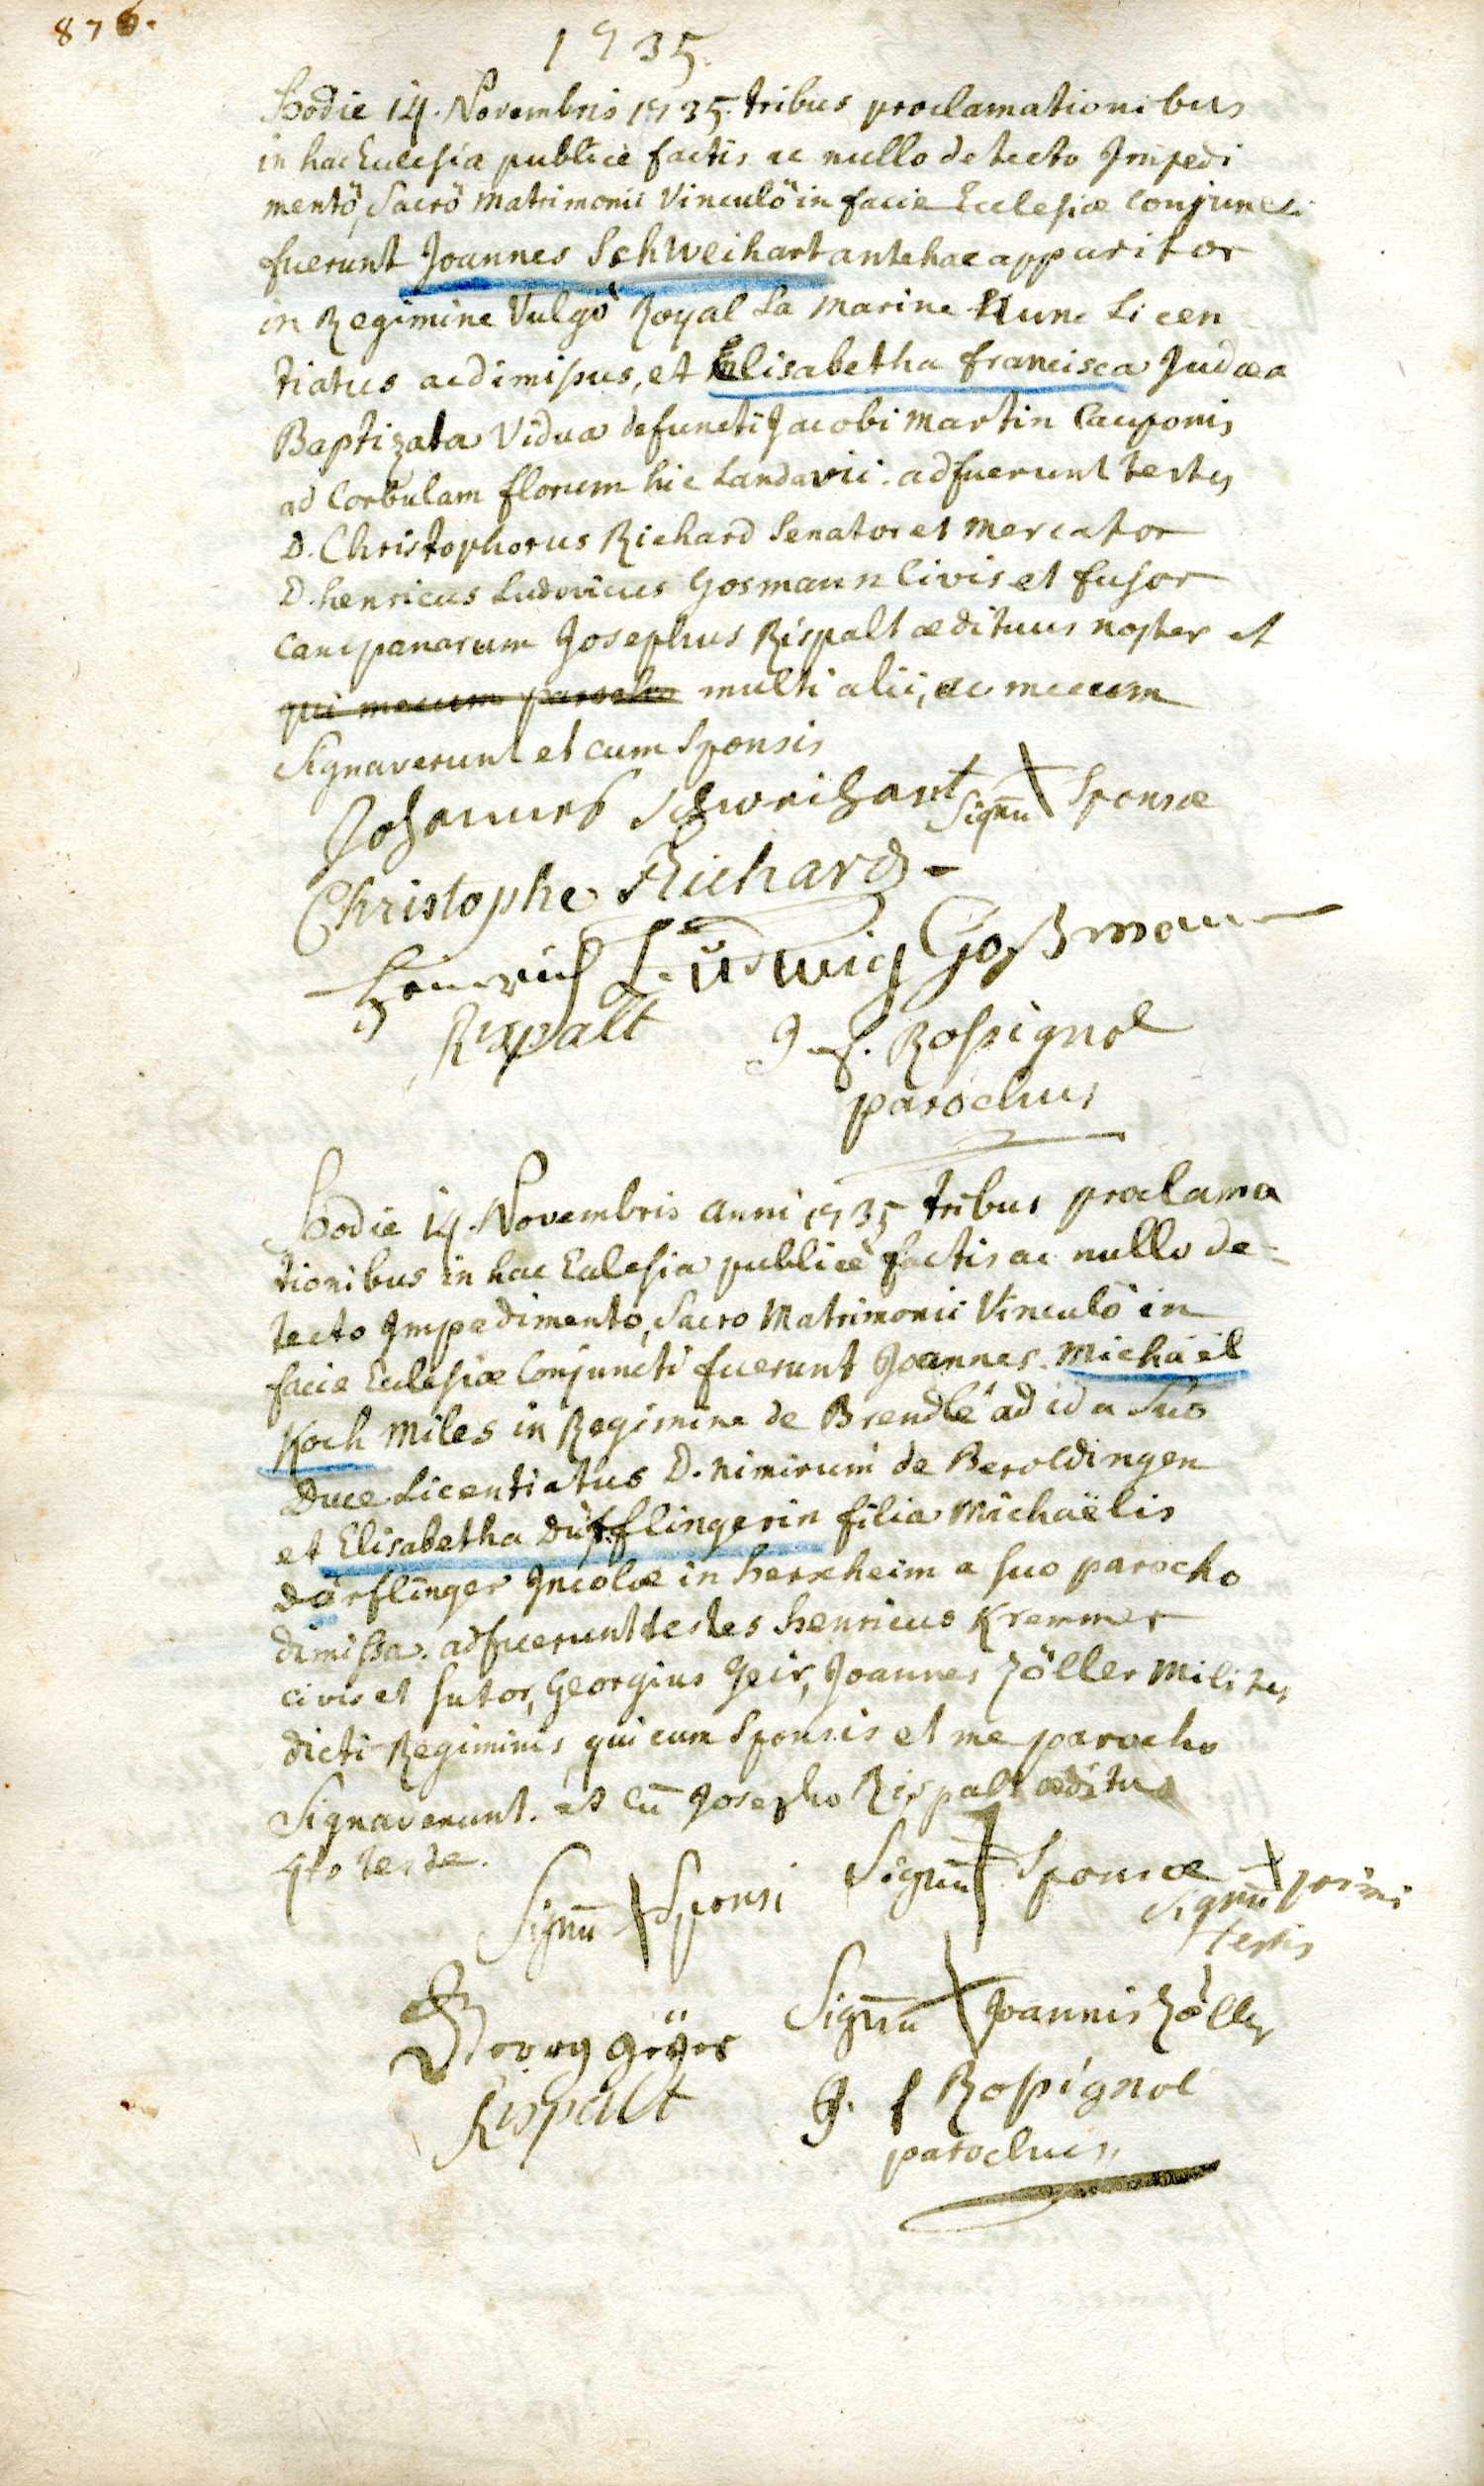 876.
1735.
Hodie 14. Novembris 1735. tribus proclamationibus
in hac Ecclesia publicè factis ac nullo detecto Impedi
mentô, Sacrô Matrimonii Vinculô in facie Ecclesiæ Conjuncti
fuerunt Joannes Schweihart antehac apparitor
in Regimine Vulgò Royal La Marine Nunc Licen
tiatus ac dimissus, et Elisabetha francisca Judæa
Baptizata Vidua defuncti Jacobi Martin Cauponis
ad Corbulam florum hic Landavii. adfuerunt testes
D. Christophorus Richard Senator et Mercator
D. henricus Ludovicus Gosmann Civis et fusor
Campanarum Josephus Rispalt ædituus noster et
qui mecum parocho multi alii, ac mecum
Signaverunt et cum Sponsis
Johannes Schweihart Signū Sponsæ
Christophe Richard
Heinrich Ludwig Goßmann
Rispalt J. f. Rossignol
parochus
Hodie 14. Novembris anni 1735 tribus proclama
tionibus in hac Ecclesia publicè factis ac nullo de-
tecto Impedimento, Sacro Matrimonii Vinculô in
facie Ecclesiæ Conjuncti fuerunt Joannes Michaël
Koch Miles in Regimine de Brendlé ad id a Suo
Duce Licentiatus D. nimirum de Beroldingen
et Elisabetha Dürfflingerin filia Michaëlis
Dörflinger Incolæ in herxheim a suo parocho
dimissa. adfuerunt testes henricus Kremmer
civis et sutor, Georgius Geir, Joannes Zöller Milites
dicti Regiminis, qui cum Sponsis et me parocho
Signaverunt. et cū Josepho Rispalt ædituo
4to teste.
Signū Sponsi Signū Sponsæ Signū primi
testis
Georg Geÿer Signū Joannis Zöller
Rispalt J. f Rossignol
parochus